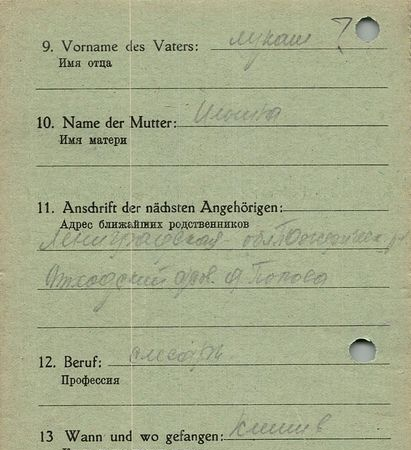 9. Vorname des Vaters: Лукаш ?
Имя отца
10. Name der Mutter:
Имя матери
11. Anschrift der nächsten Angehörigen:
Адрес ближайших родственников
Ленинградская обл.
дер. Попова
12. Beruf: слесарь
Профессия
13 Wann und wo gefangen: